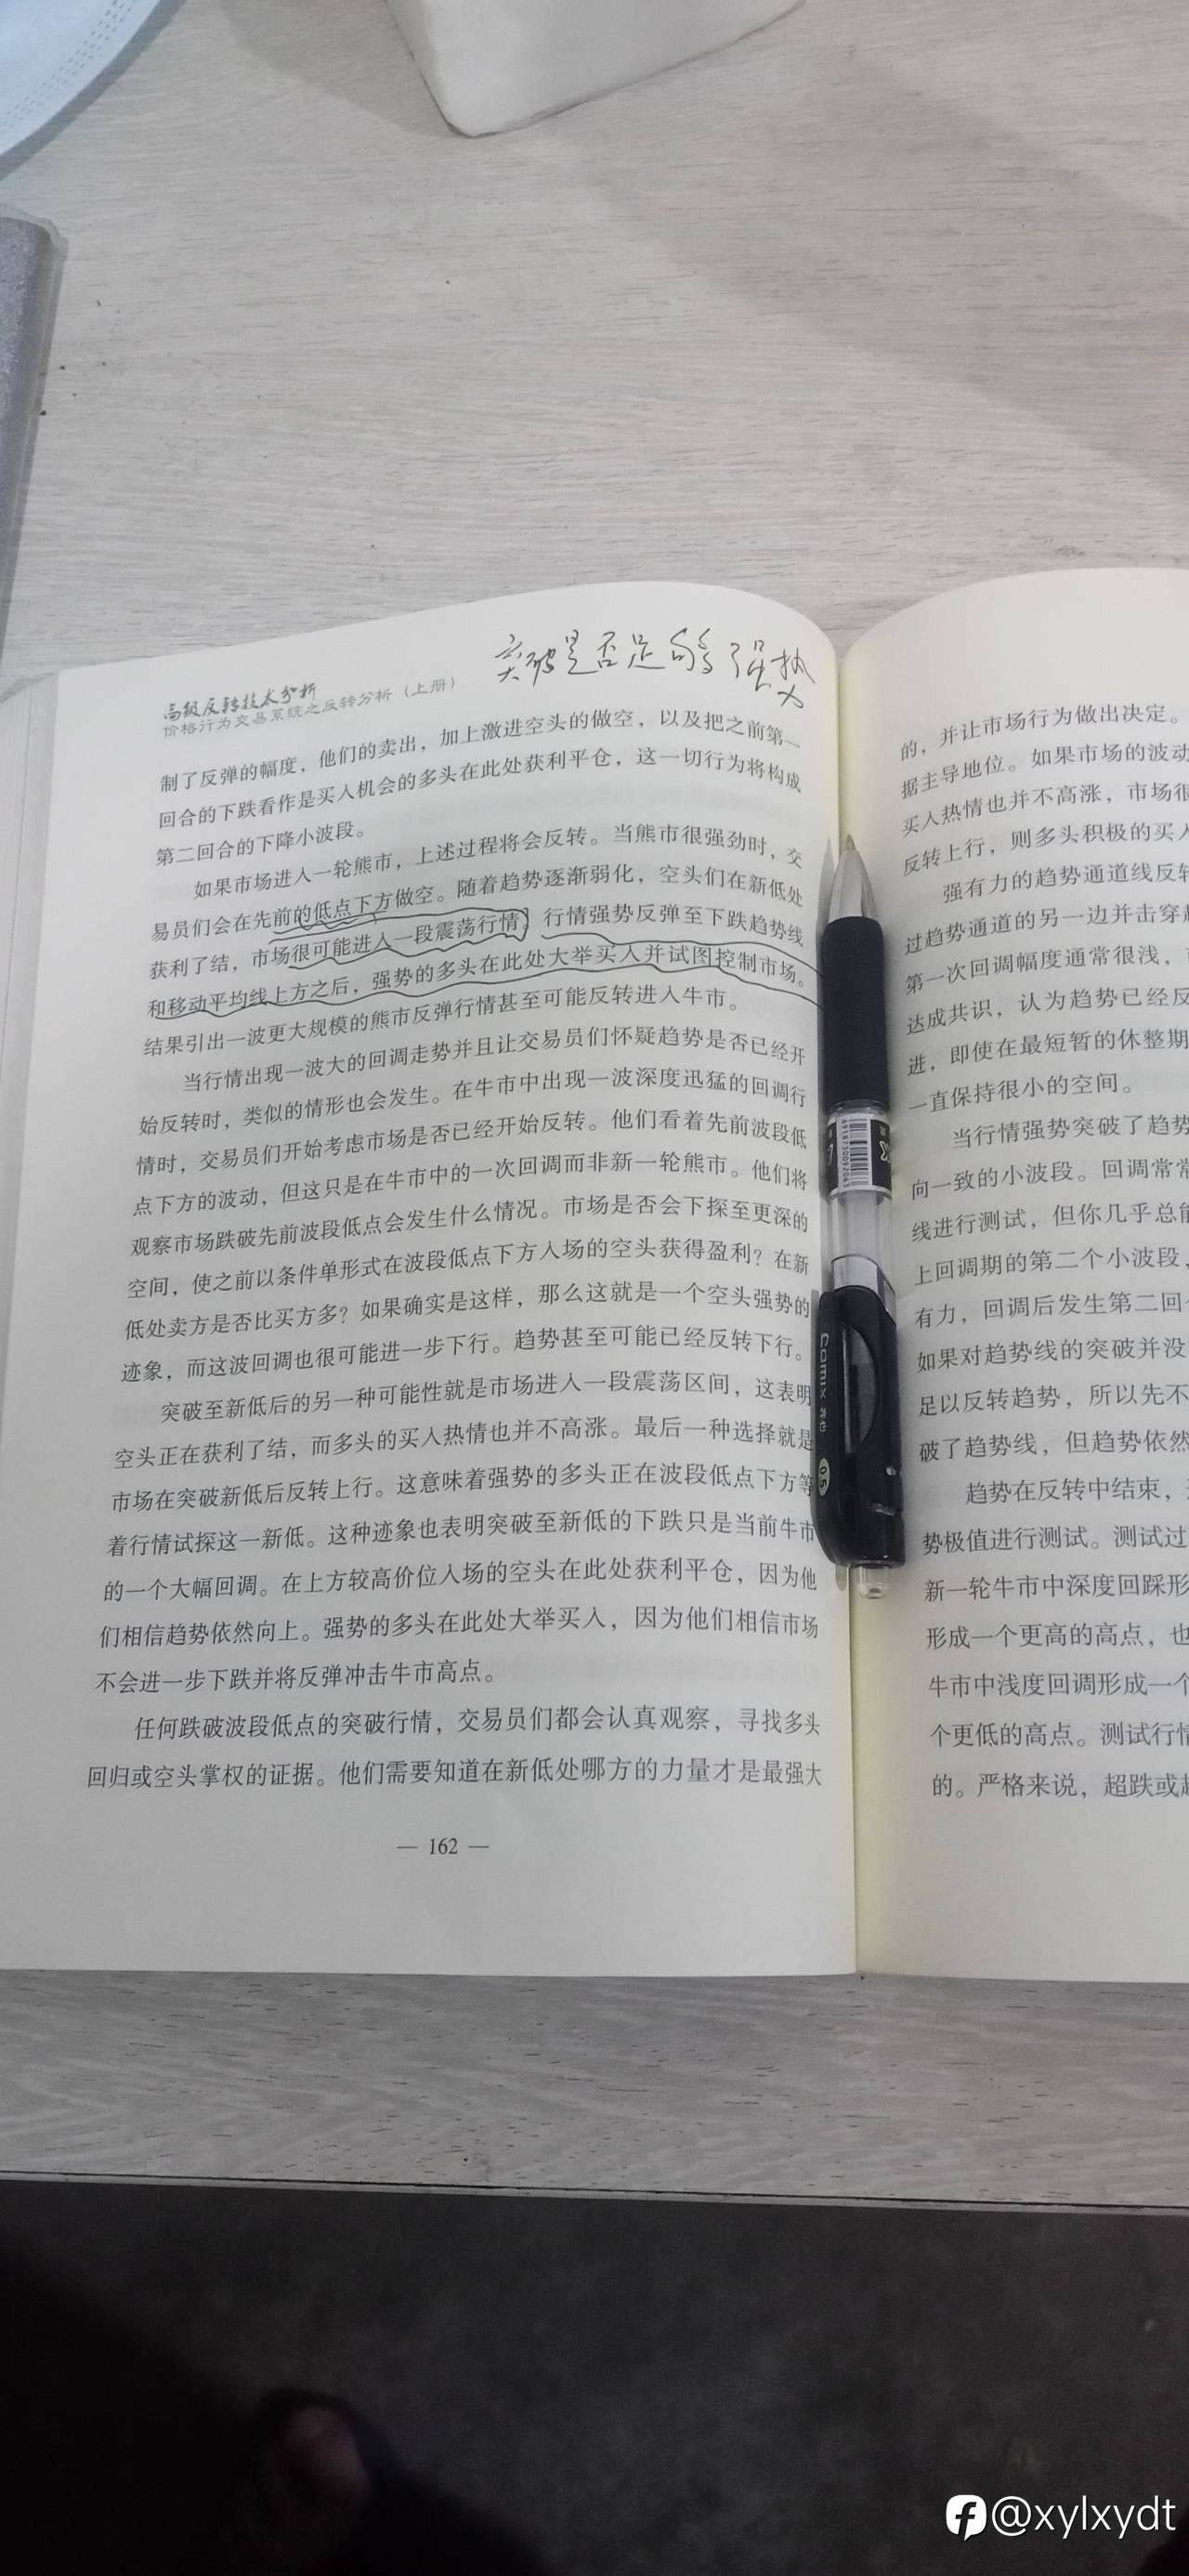 突破是否足够强势
高级反转技术分析
价格行为交易系统之反转分析（上册）
制了反弹的幅度，他们的卖出，加上激进空头的做空，以及把之前第一
回合的下跌看作是买入机会的多头在此处获利平仓，这一切行为将构成
第二回合的下降小波段。
如果市场进入一轮熊市，上述过程将会反转。当熊市很强劲时，交
易员们会在先前的低点下方做空。随着趋势逐渐弱化，空头们在新低处
获利了结，市场很可能进入一段震荡行情。行情强势反弹至下跌趋势线
和移动平均线上方之后，强势的多头在此处大举买入并试图控制市场。
结果引出一波更大规模的熊市反弹行情甚至可能反转进入牛市。
当行情出现一波大的回调走势并且让交易员们怀疑趋势是否已经开
始反转时，类似的情形也会发生。在牛市中出现一波深度迅猛的回调行
情时，交易员们开始考虑市场是否已经开始反转。他们看着先前波段低
点下方的波动，但这只是在牛市中的一次回调而非新一轮熊市。他们将
观察市场跌破先前波段低点会发生什么情况。市场是否会下探至更深的
空间，使之前以条件单形式在波段低点下方入场的空头获得盈利？在新
低处卖方是否比买方多？如果确实是这样，那么这就是一个空头强势的
迹象，而这波回调也很可能进一步下行。趋势甚至可能已经反转下行。
突破至新低后的另一种可能性就是市场进入一段震荡区间，这表明
空头正在获利了结，而多头的买入热情也并不高涨。最后一种选择就是
市场在突破新低后反转上行。这意味着强势的多头正在波段低点下方等
着行情试探这一新低。这种迹象也表明突破至新低的下跌只是当前牛市
的一个大幅回调。在上方较高价位入场的空头在此处获利平仓，因为他
们相信趋势依然向上。强势的多头在此处大举买入，因为他们相信市场
不会进一步下跌并将反弹冲击牛市高点。
任何跌破波段低点的突破行情，交易员们都会认真观察，寻找多头
回归或空头掌权的证据。他们需要知道在新低处哪方的力量才是最强大
— 162 —
的，并让市场行为做出决定。
据主导地位。如果市场的波动
买入热情也并不高涨，市场很
反转上行，则多头积极的买入
强有力的趋势通道线反转
过趋势通道的另一边并击穿趋
第一次回调幅度通常很浅，
达成共识，认为趋势已经反
进，即使在最短暂的休整期
一直保持很小的空间。
当行情强势突破了趋势
向一致的小波段。回调常常
线进行测试，但你几乎总能
上回调期的第二个小波段，
有力，回调后发生第二回
如果对趋势线的突破并没
足以反转趋势，所以先不
破了趋势线，但趋势依然
趋势在反转中结束，
势极值进行测试。测试过
新一轮牛市中深度回踩形
形成一个更高的高点，也
牛市中浅度回调形成一个
个更低的高点。测试行情
的。严格来说，超跌或超
6918730092063
comix 齐心
05
@xylxydt